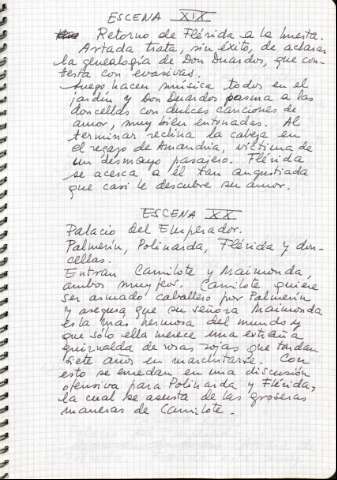 ESCENA XIX
Retorno de Flérida a la huerta.
Artada trata, sin éxito, de aclarar
la genealogía de Don Duardos, que con-
testa con evasivas.
Luego hacen música todos en el
jardín y Don Duardos pasma a las
doncellas con dulces canciones de
amor, muy bien entonadas. Al
terminar reclina la cabeza en
el regazo de Amandria, víctima de
un desmayo pasajero. Flérida
se acerca a él tan angustiada
que casi le descubre su amor.
ESCENA XX
Palacio del Emperador.
Palmerín, Polinarda, Flérida y don-
cellas.
Entran Camilote y Maimonda,
ambos muy feos. Camilote quiere
ser armado caballero por Palmerín
y asegura que su señora Maimonda
es la más hermosa del mundo y
que sólo ella merece una extraña
guirnalda de rosas rojas que tardan
siete años en marchitarse. Con
esto se enredan en una discusión
ofensiva para Polinarda y Flérida,
la cual se asusta de las groseras
maneras de Camilote.